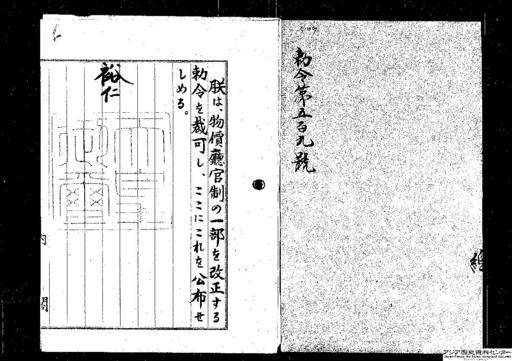 勅令第五百九號
朕は、物價廳官制の一部を改正する
勅令を裁可し、ここにこれを公布せ
しめる。
裕仁
天皇御璽
内閣
アジア歴史資料センター